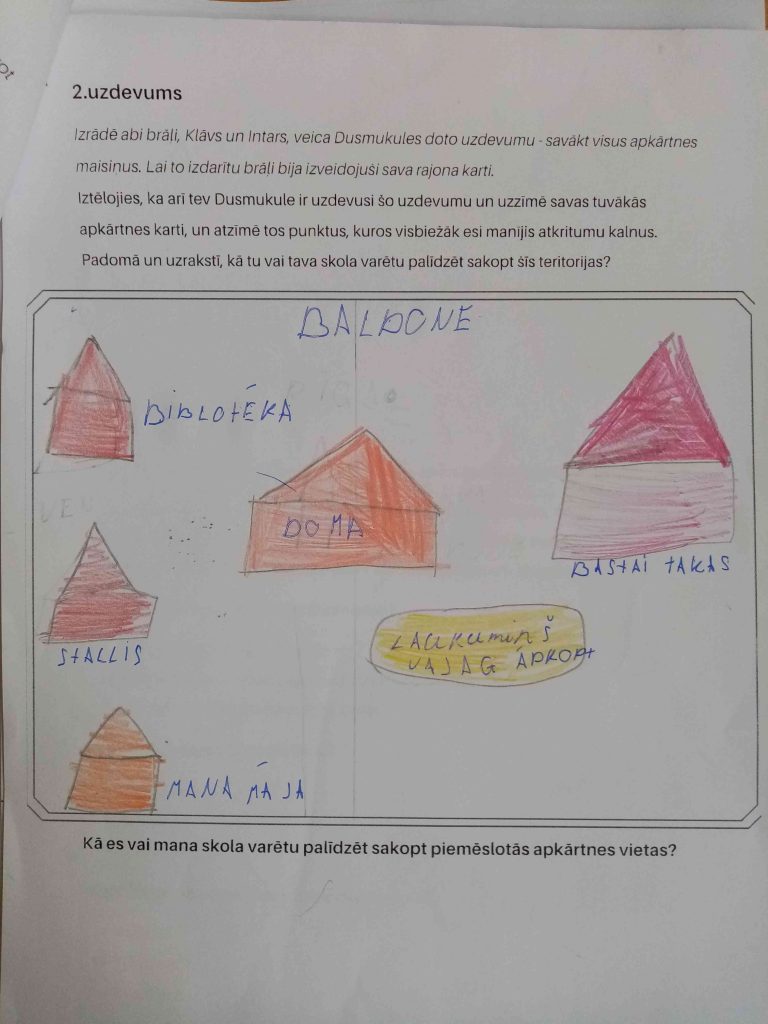 2.uzdevums
Izrādē abi brāļi, Klāvs un Intars, veica Dusmukules doto uzdevumu - savākt visus apkārtnes
maisiņus. Lai to izdarītu brāļi bija izveidojuši sava rajona karti.
Iztēlojies, ka arī tev Dusmukule ir uzdevusi šo uzdevumu un uzzīmē savas tuvākās
apkārtnes karti, un atzīmē tos punktus, kuros visbiežāk esi manījis atkritumu kalnus.
Padomā un uzrakstī, kā tu vai tava skola varētu palīdzēt sakopt šīs teritorijas?
BALDONE
BIBLOTĒKA
DOMA
BASTAI TAKAS
STALLIS
LAUKUMIŅŠ
VAJAG ĀPKOPT
MANA MĀJA
Kā es vai mana skola varētu palīdzēt sakopt piemēslotās apkārtnes vietas?